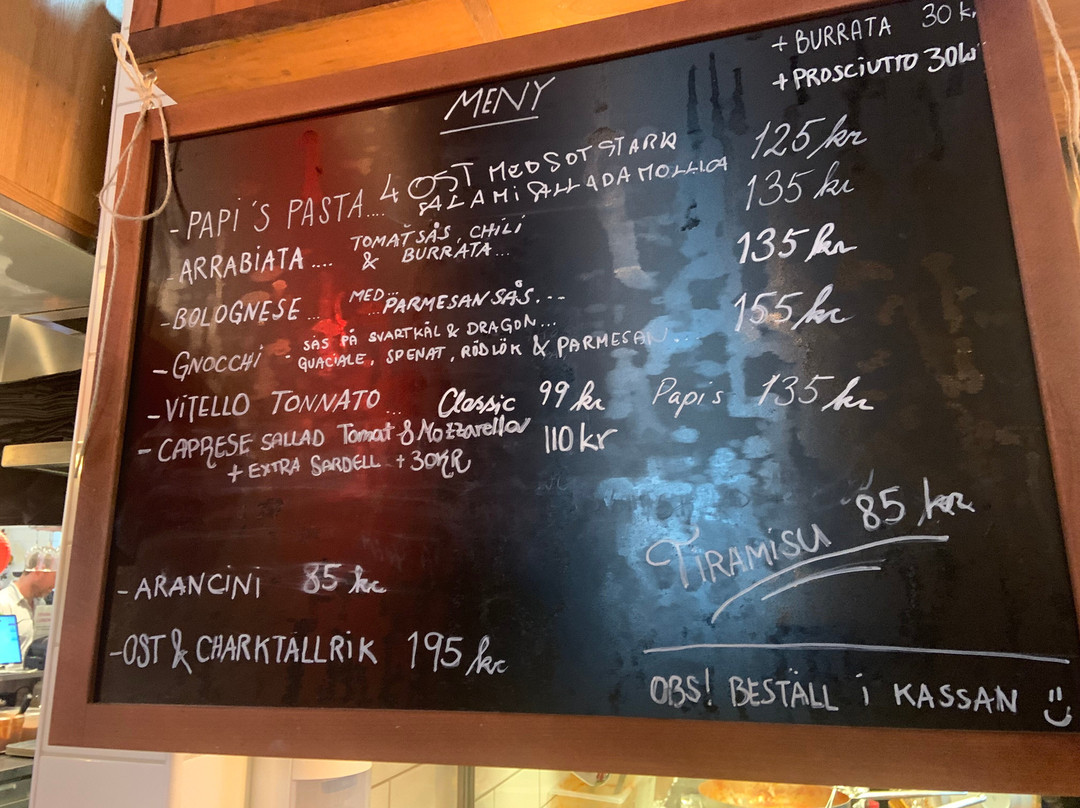 + BURRATA 30 kr
+ PROSCIUTTO 30kr
MENY
- PAPI'S PASTA.... 4 OST MED SOT STARK 125 kr
SALAMI SALLADA MOLLICA
- ARRABIATA .... TOMATSÅS, CHILI 135 kr
& BURRATA...
- BOLOGNESE ... MED... PARMESAN SÅS... 135 kr
- GNOCCHI - SÅS PÅ SVARTKÅL & DRAGON... 155 kr
GUACIALE, SPENAT, RÖDLÖK & PARMESAN...
- VITELLO TONNATO ... Classic 99 kr Papis 135 kr
- CAPRESE SALLAD Tomat & Mozzarella 110 kr
+ EXTRA SARDELL + 30KR
TIRAMISU 85 kr
- ARANCINI 85 kr
- OST & CHARKTALLRIK 195 kr
OBS! BESTÄLL i KASSAN